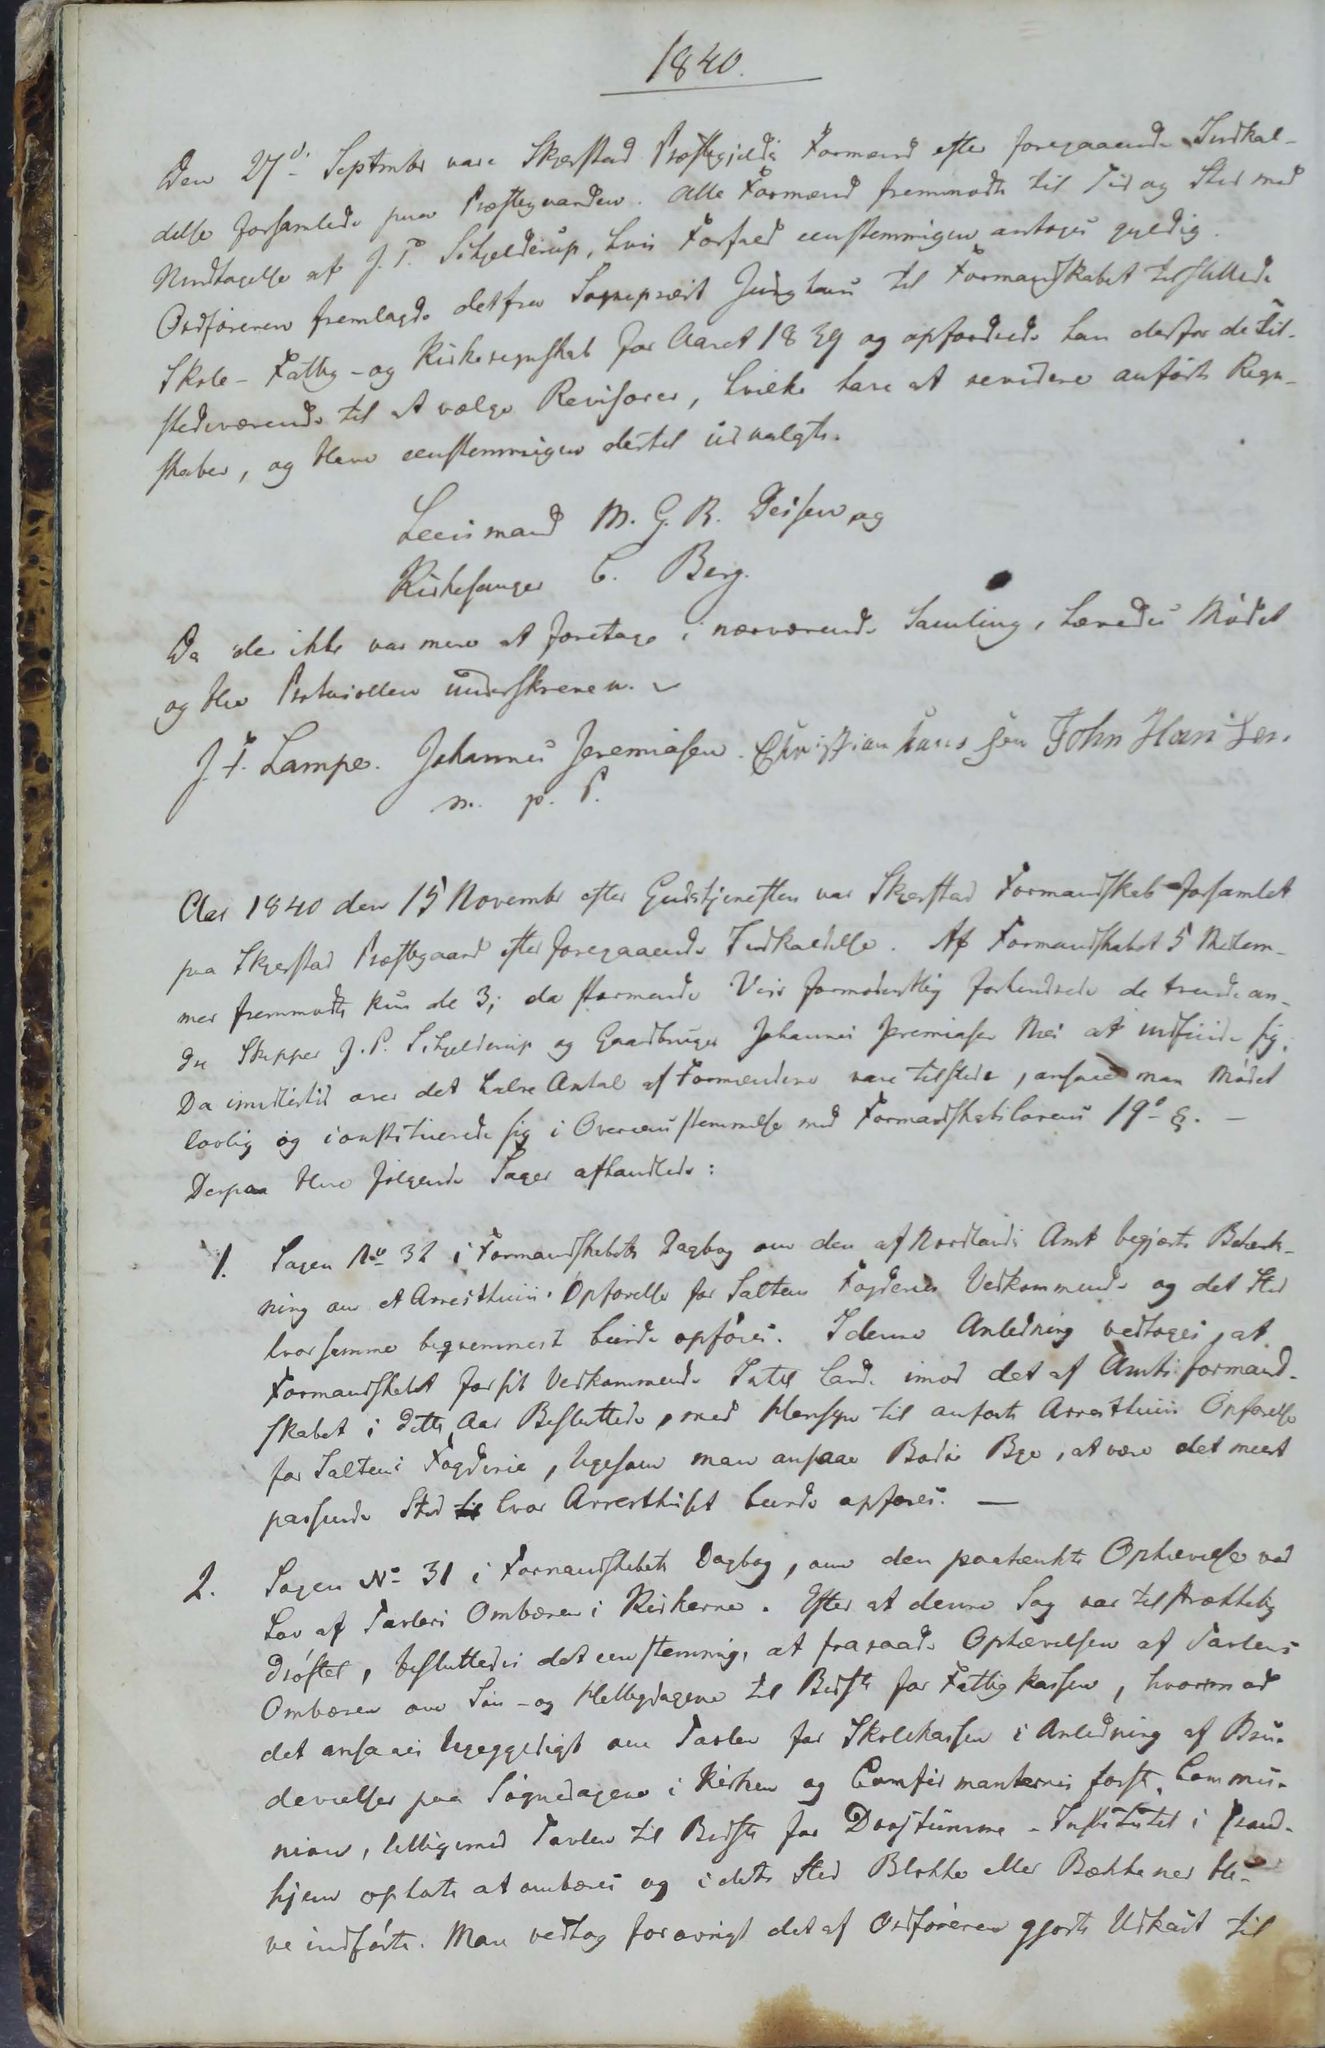 1840.
Den 27de Septmbr vare Skjerstad Præstegjelds Formænd efter foregaaende Indkal-
delse forsamlede paa Præstegaarden. Alle Formænd fremmødte til Tid og Sted med
Undtagelse af J. P. Schjelderup, hvis Forfald eenstemmigen antoges gyldig.
Ordføreren fremlagde det fra Sogneprest Junghans til Formandskabet tilstillede
Skole- Fattig- og Kirkeregnskab for Aaret 1839 og opfordrede han derfor de til-
stedeværende til at vælge Revisorer, hvilke have at revidere anførte Regn-
skaber, og bleve eenstemmigen dertil udvalgte.
Leensmand M. G. R. Deisen og
Kirkesanger C. Berg.
Da der ikke var mere at foretage i nærværende Samling, hævedes Mødet
og blev Protocollen underskreven.
J. F. Lampe. Johannes Jeremiasen. Christian Hans sen John Han sen.
m. p. P.
Aar 1840 den 15 Novembr efter Gudstjenesten var Skjerstad Formandskab forsamlet
paa Skjerstad Præstegaard efter foregaaende Indkaldelse. Af Formandskabet 5 Medlem-
mer fremmødte kun de 3; da stormende Veir formodentlig forhindrede de tvende an-
dre Skipper J. P. Schjelderup og Gaardbruger Johannes Jeremiasen Næs at indfinde sig.
Da imidlertid over det halve Antal af Formændene vare tilstede, ansaae man Mødet
lovlig og constituerede sig i Overeensstemmelse med Formandskabslovens 19de §. —
Derpaa bleve følgende Sager afhandlede:
1. Sagen No 32 i Formandskabets Dagbog om den af Nordlands Amt begjærte Betænk-
ning om et Arresthuus Opførelse for Saltens Fogderies Vedkommende og det Sted
hvor samme beqvemmest burde opføres. I denne Anledning vedtoges, at
Formandskabet for sit Vedkommende Intet havde imod det af Amtsformand-
skabet i dette Aar Besluttede, med Hensyn til anførte Arresthuus Opførelse
for Saltens Fogderie, ligesom man ansaae Bodø Bye, at være det meest
passende Sted hvor Arresthuset burde opføres. —
2. Sagen No 31 i Formandskabets Dagbog, om den paatænkte Ophævelse ved
Lov af Tavlers Ombæren i Kirkerne. Efter at denne Sag var tilstrækkelig
drøftet, besluttedes det eenstemmig, at fraraade Ophævelsen af Tavlens
Ombæren om Søn- og Helligdagene til Bedste for Fattigkassen, hvormod
det ansaaes ligegyldigt om Tavlen for Skolekassen i Anledning af Bru-
devielser paa Søgnedagene i Kirken og Comfirmanternes første Commu-
nion, tilligemed Tavlen til Bedste for Døvstumme-Institutet i Trond-
hjem ophørte at ombæres og i dets Sted Blokke eller Bækkener ble-
ve indførte. Man vedtog forøvrigt det af Ordføreren gjorte Udkast til